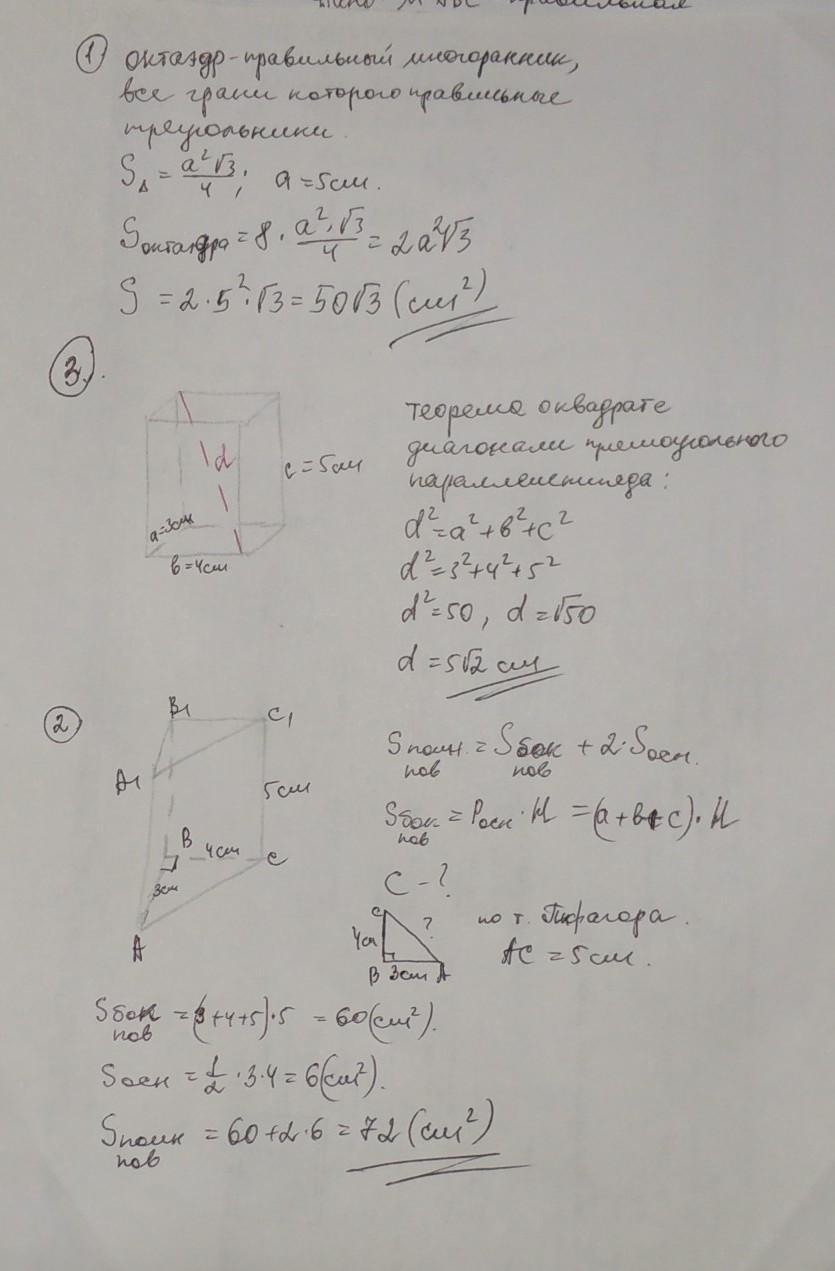 правильная
① октаэдр - правильный многогранник,
все грани которого правильные
треугольники.
S△ = a²√3/4; a = 5см.
Sоктаэдра = 8 · a²·√3/4 = 2a²√3
S = 2·5²·√3 = 50√3 (см²)
3.
d
c = 5см
a=3см
b = 4см
теорема о квадрате
диагонали прямоугольного
параллелепипеда:
d² = a² + b² + c²
d² = 3² + 4² + 5²
d² = 50, d = √50
d = 5√2 см
②
B1
C1
A1
5см
B 4см C
3см
A
Sполн. пов = Sбок пов + 2·Sосн.
Sбок. пов = Pосн · H = (a + b + c) · H
C - ?
C
4см ?
B 3см A
по т. Пифагора.
AC = 5см.
Sбок пов = (3+4+5)·5 = 60 (см²).
Sосн = 1/2 · 3·4 = 6 (см²).
Sполн пов = 60 + 2·6 = 72 (см²)